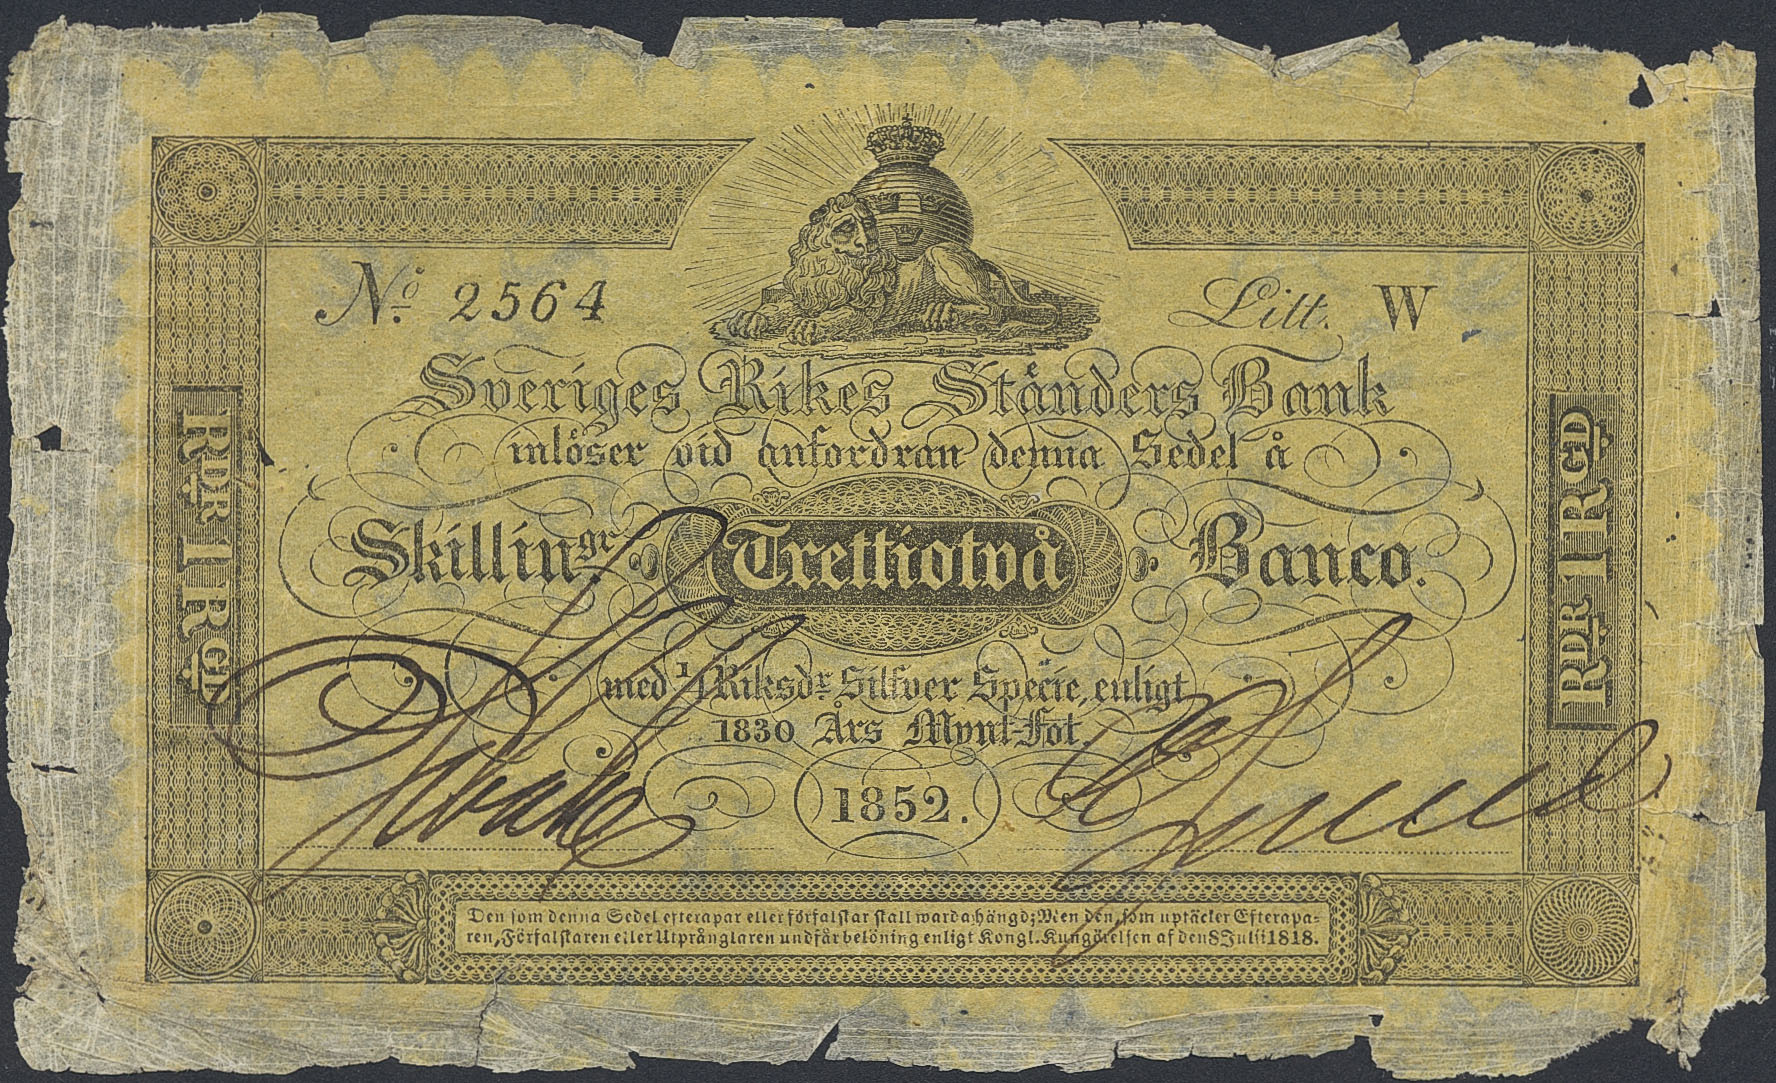 No. 2564 Litt. W
Sveriges Rikes Ständers Bank
inlöser vid anfordran denna Sedel å
Skillingr Trettiotvå Banco.
med 1/4 Riksdr Silfver Specie, enligt
1830 Års Mynt-Fot.
1852.
RDR 1 RGD
RDR 1 RGD
Den som denna Sedel efterapar eller förfalskar skall warda hängd; Men den, som uptäcker Efterapa-
ren, Förfalskaren eller Utprånglaren undfår belöning enligt Kongl. Kungörelsen af den 8 Julii 1818.